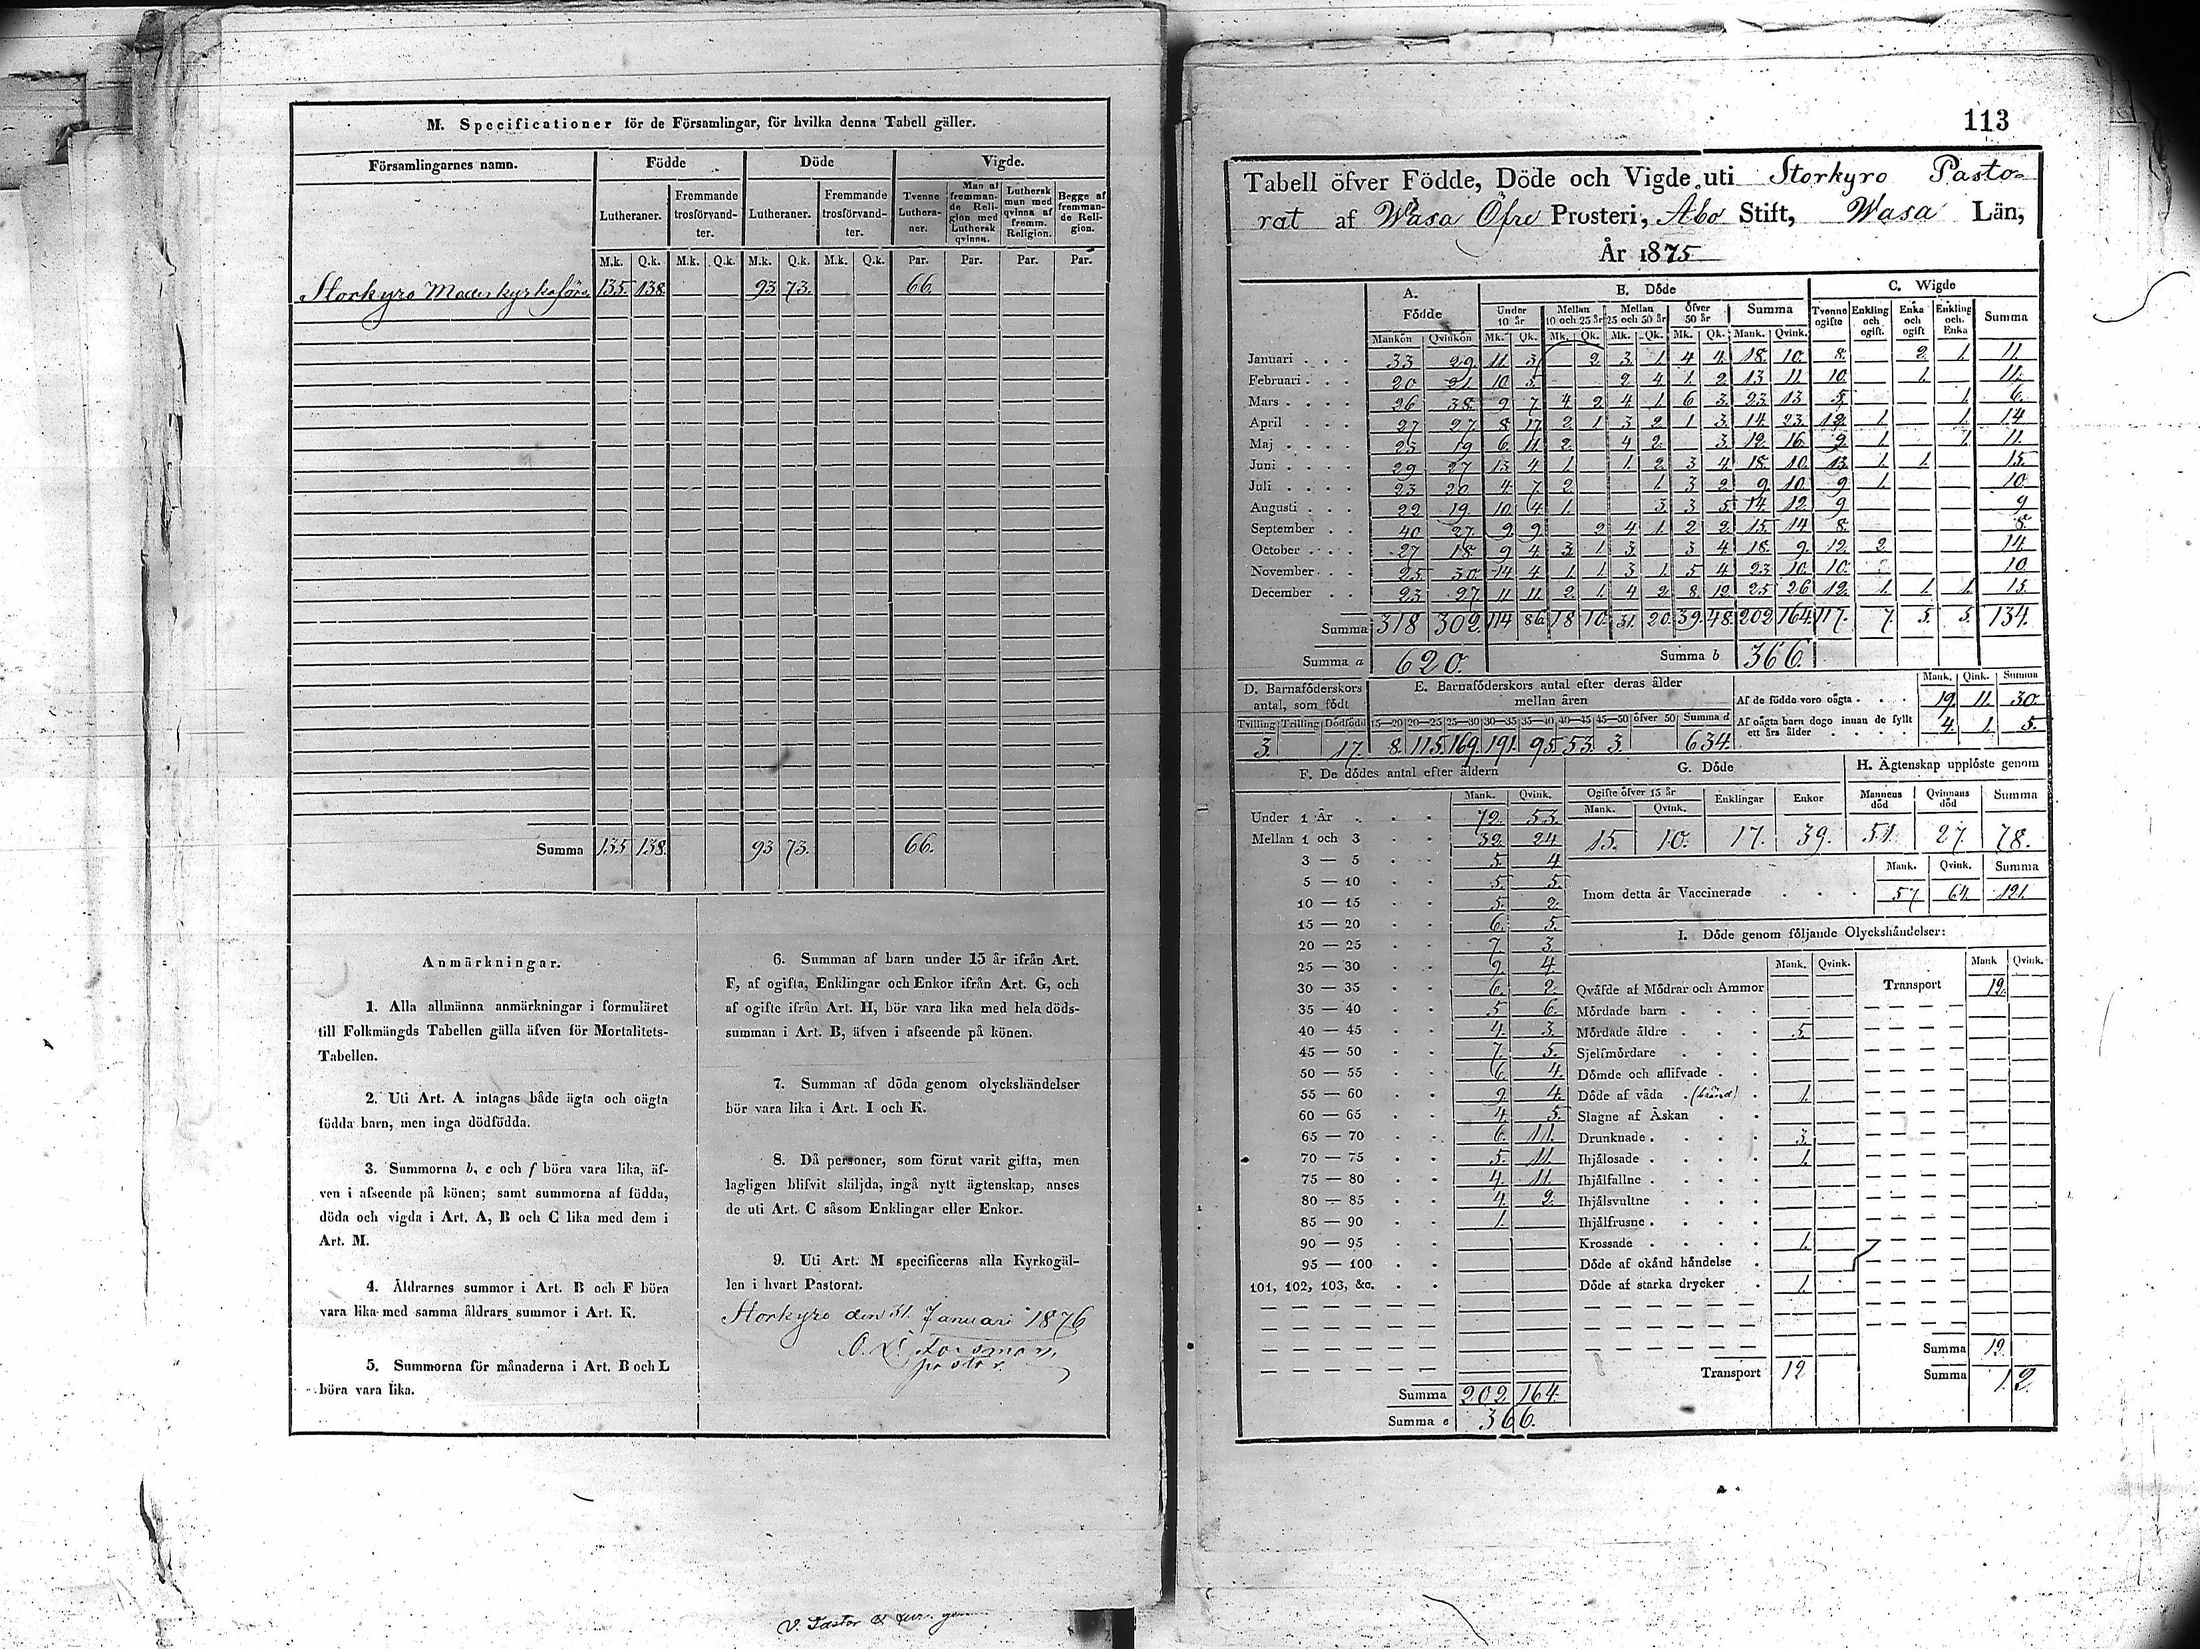 M. Specificationer för de Församlingar, för hvilka denna Tabell gäller.
Församlingarnes namn. Födde Döde Vigde.
Lutheraner. Fremmande trosförvandter. Lutheraner. Fremmande trosförvandter. Tvenne Lutheraner. Man af fremmande Religion med Luthersk qvinna. Luthersk man med qvinna af fremm. Religion. Begge af fremmande Religion.
M.k. Q.k. M.k. Q.k. M.k. Q.k. M.k. Q.k. Par. Par. Par. Par.
Storkyro Moderkyrkoförs. 135. 138. 93 73. 66.
Summa 135 138. 93 73. 66.
Anmärkningar.
1. Alla allmänna anmärkningar i formuläret
till Folkmängds Tabellen gälla äfven för Mortalitets-
Tabellen.
2. Uti Art. A intagas både ägta och oägta
födda barn, men inga dödfödda.
3. Summorna b, c och f böra vara lika, äf-
ven i afseende på könen; samt summorna af födda,
döda och vigda i Art. A, B och C lika med dem i
Art. M.
4. Åldrarnes summor i Art. B och F böra
vara lika med samma åldrars summor i Art. K.
5. Summorna för månaderna i Art. B och L
böra vara lika.
6. Summan af barn under 15 år ifrån Art.
F, af ogifta, Enklingar och Enkor ifrån Art. G, och
af ogifte ifrån Art. H, bör vara lika med hela döds-
summan i Art. B, äfven i afseende på könen.
7. Summan af döda genom olyckshändelser
bör vara lika i Art. I och K.
8. Då personer, som förut varit gifta, men
lagligen blifvit skiljda, ingå nytt ägtenskap, anses
de uti Art. C såsom Enklingar eller Enkor.
9. Uti Art. M specificeras alla Kyrkogäl-
len i hvart Pastorat.
Storkyro den 31. Januari 1876
pastor.
113
Tabell öfver Födde, Döde och Vigde uti Storkyro Pasto-
rat af Wasa Öfre Prosteri, Åbo Stift, Wasa Län,
År 1875
A. Födde B. Döde C. Wigde
Under 10 år Mellan 10 och 25 år Mellan 25 och 50 år Öfver 50 år Summa Tvenne ogifte Enkling och ogift. Enka och ogift Enkling och Enka Summa
Mankön Qvinkön Mk. Qk. Mk. Qk. Mk. Qk. Mk. Qk. Mank. Qvink.
Januari 33 29. 11. 3. 2 3. 1. 4 4. 18. 10. 8. 2. 1. 11.
Februari 20 21. 10 3. 2 4 1. 2 13 11. 10. 1. 11.
Mars 26 38. 9 7 4 2 4 1 6 3. 23 13 5. 1. 6.
April 27 27. 8 17 2 1 3 2 1 3 14 23 12. 1. 1. 14
Maj 23 19 6. 11. 2 4 2. 3 12. 16 9. 1. 1. 11.
Juni 29 27 13 4 1 1. 2 3 4 18. 10. 13. 1. 1. 15.
Juli 23 20 4 7 2 1. 3 2 9 10. 9 1. 10
Augusti 22 19. 10 4 1. 3 3 5 14 12. 9 9
September 40 27. 9 9 2 4 1 2 2 15 14 8. 8.
October 27 18. 9 4 3 1 3. 3 4 18. 9. 12. 2. 14.
November 25 30. 14 4 1. 1. 3 1. 5 4 23 10. 10. 10
December 23 27. 11 11. 2 1. 4 2 8 12 25 26 12. 1. 1. 1. 15.
Summa 318 302. 114 86. 18 10. 31. 20. 39. 48. 202 164. 117. 7. 5. 5. 134.
Summa a 620. Summa b 366.
D. Barnaföderskors antal, som födt
Tvilling Trilling Dödfödd
3. 17.
E. Barnaföderskors antal efter deras ålder mellan åren
15—20 20—25 25—30 30—35 35—40 40—45 45—50 öfver 50 Summa d
8. 115. 169. 191. 95 53. 3. 634.
Mank. Qink. Summa
Af de födde voro oägta 19. 11. 30.
Af oägta barn dogo innan de fyllt ett års ålder 4. 1. 5.
F. De dödes antal efter åldern
Mank. Qvink.
Under 1 År 72. 53.
Mellan 1 och 3 32. 24
3 — 5 5. 4
5 — 10 5. 5.
10 — 15 5. 2.
15 — 20 6. 5.
20 — 25 7 3.
25 — 30 9 4.
30 — 35 6. 2
35 — 40 5 6.
40 — 45 4. 3.
45 — 50 7. 5.
50 — 55 6 4.
55 — 60 9 4.
60 — 65 4. 5.
65 — 70 6. 11.
70 — 75 5. 11.
75 — 80 4. 11.
80 — 85 4. 2.
85 — 90 1.
90 — 95
95 — 100
101, 102, 103, &c.
Summa 202 164.
Summa e 366.
G. Döde
Ogifte öfver 15 år Enklingar Enkor
Mank. Qvink.
15. 10. 17. 39.
H. Ägtenskap upplöste genom
Mannens död Qvinnans död Summa
51. 27. 78.
Mank. Qvink. Summa
Inom detta år Vaccinerade 57 64. 121.
I. Döde genom följande Olyckshändelser:
Mank. Qvink. Mank Qvink.
Qväfde af Mödrar och Ammor Transport 12.
Mördade barn
Mördade äldre 5.
Sjelfmördare
Dömde och aflifvade
Döde af våda (bränd) 1.
Slagne af Åskan
Drunknade 3.
Ihjälosade 1.
Ihjälfallne
Ihjälsvultne
Ihjälfrusne
Krossade 1.
Döde af okänd händelse
Döde af starka drycker 1.
Summa 12.
Transport 12 Summa 12.